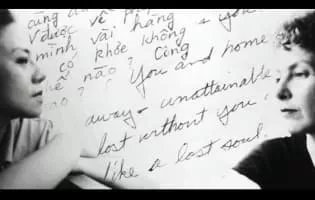 cũng
mình vài hàng & you
có khỏe không
nào? Công
You and home
away - unattainable,
lost without you.
like a lost soul.